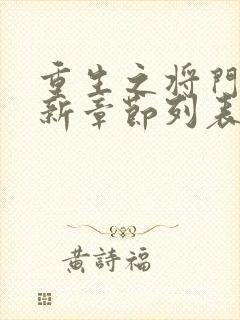 重生之将門
新章節列表
黃詩福